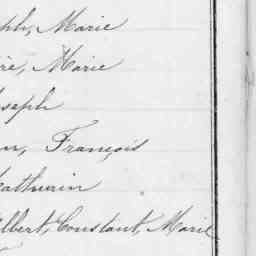 ph, Marie
re, Marie
seph
n, François
athurin
lbert, Constant, Marie